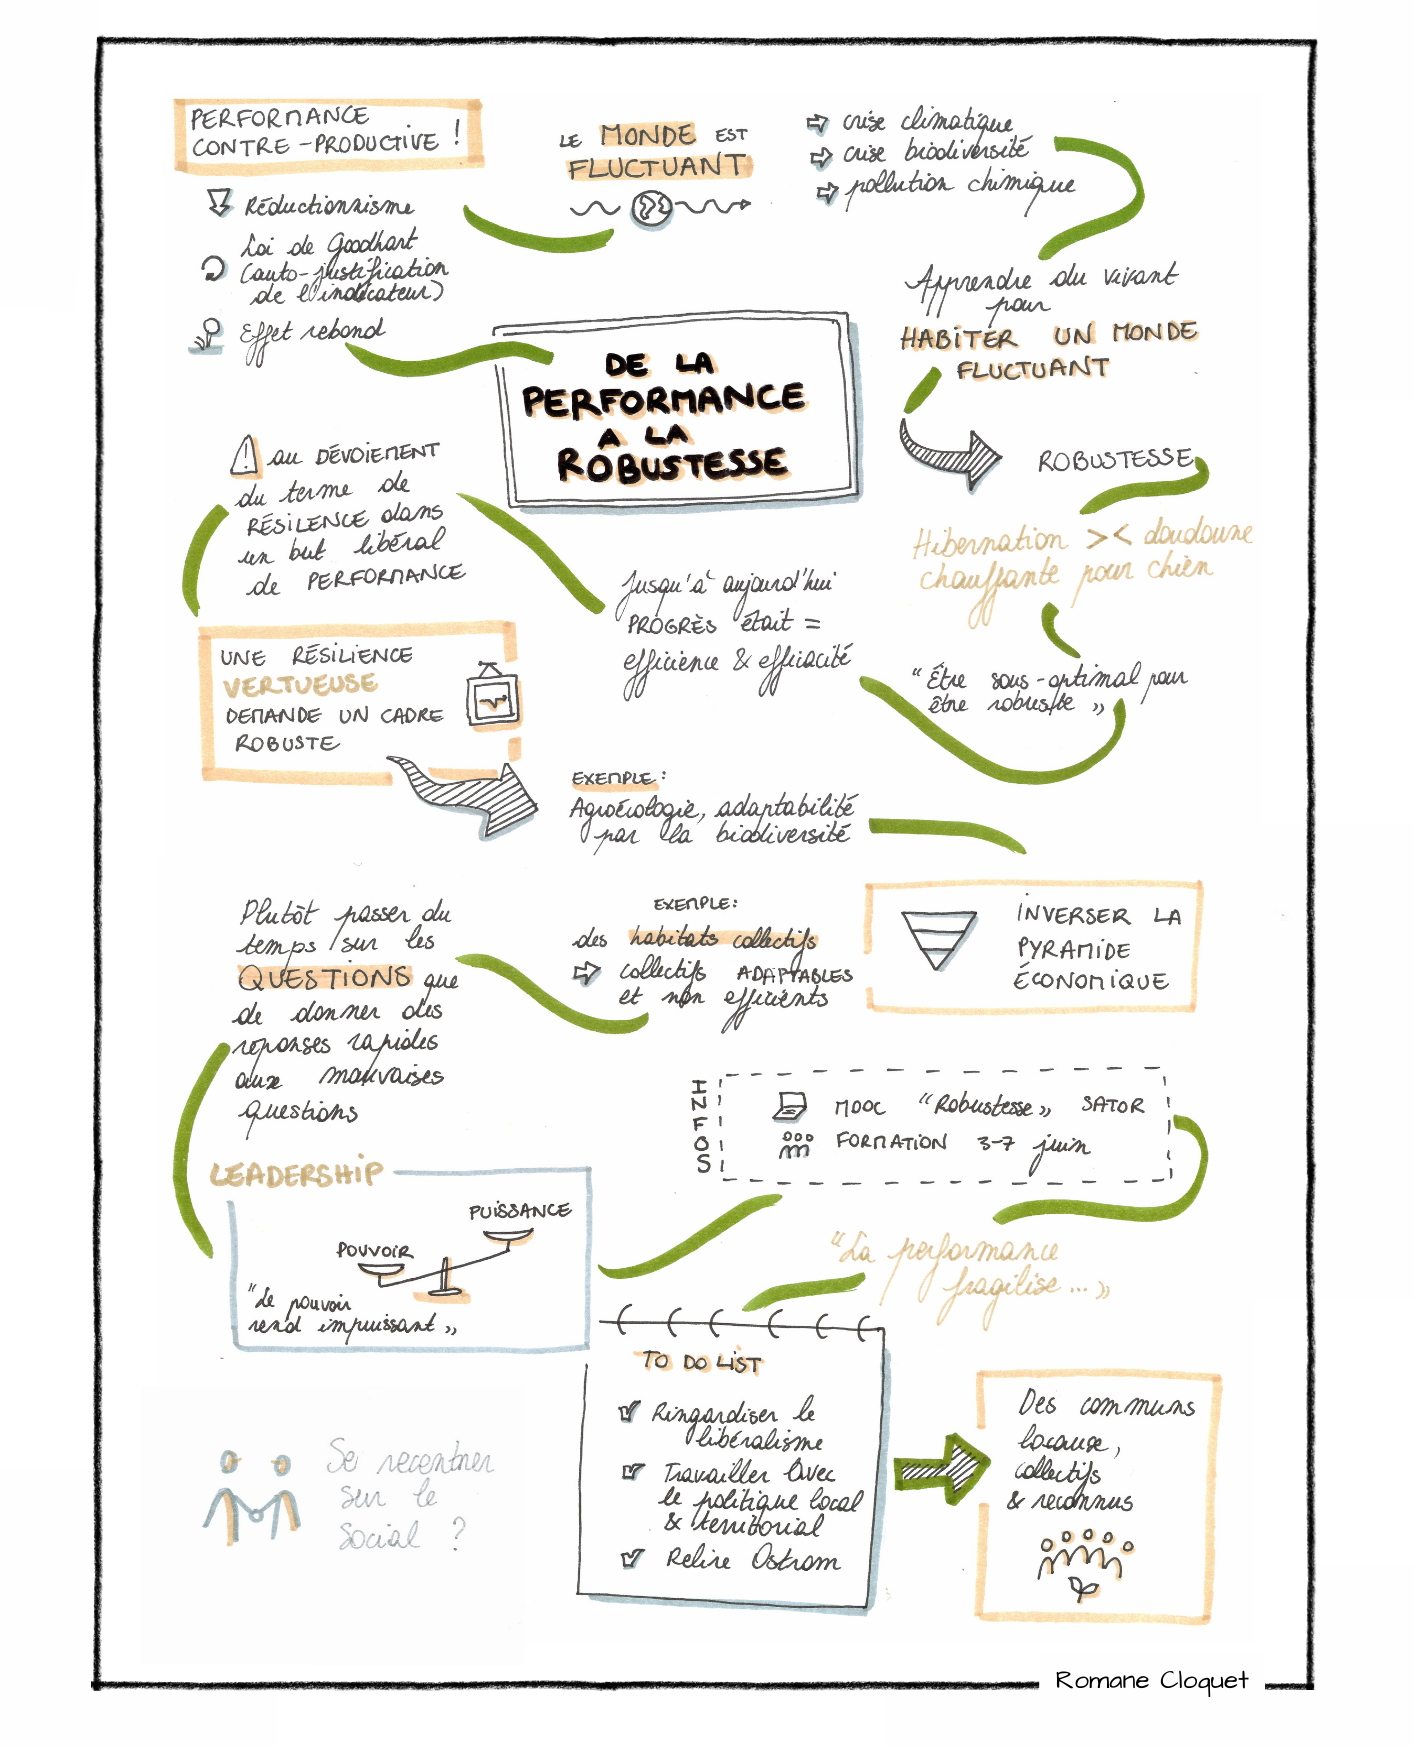 PERFORMANCE
CONTRE-PRODUCTIVE !
Réductionnisme
Loi de Goodhart
(auto-justification
de l'indicateur)
Effet rebond
LE MONDE EST
FLUCTUANT
crise climatique
crise biodiversité
pollution chimique
Apprendre du vivant
pour
HABITER UN MONDE
FLUCTUANT
DE LA
PERFORMANCE
A LA
ROBUSTESSE
ROBUSTESSE
Hibernation >< doudoune
chauffante pour chien
"Être sous-optimal pour
être robuste"
Jusqu'à aujourd'hui
PROGRÈS était =
efficience & efficacité
! au DÉVOIEMENT
du terme de
RÉSILENCE dans
un but libéral
de PERFORMANCE
UNE RÉSILIENCE
VERTUEUSE
DEMANDE UN CADRE
ROBUSTE
EXEMPLE :
Agroécologie, adaptabilité
par la biodiversité
INVERSER LA
PYRAMIDE
ÉCONOMIQUE
EXEMPLE :
des habitats collectifs
collectifs ADAPTABLES
et non efficients
Plutôt passer du
temps sur les
QUESTIONS que
de donner des
réponses rapides
aux mauvaises
questions
LEADERSHIP
PUISSANCE
POUVOIR
"Le pouvoir
rend impuissant"
INFOS
MOOC "Robustesse" SATOR
FORMATION 3-7 juin
"La performance
fragilise..."
TO DO LIST
Ringardiser le
libéralisme
Travailler avec
le politique local
& territorial
Relire Ostrom
Des communs
locaux,
collectifs
& reconnus
Se recentrer
sur le
social ?
Romane Cloquet